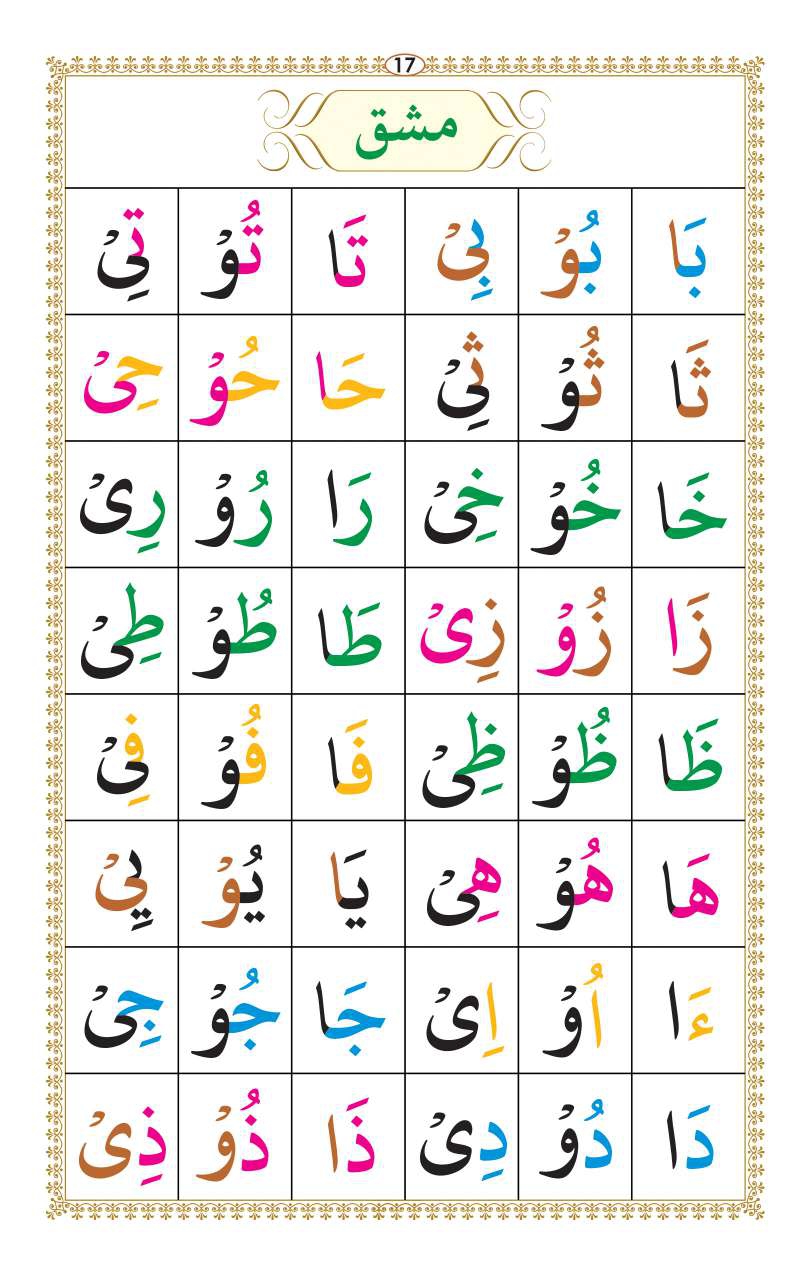 17
مشق
بَا بُوْ بِیْ تَا تُوْ تِیْ
ثَا ثُوْ ثِیْ حَا حُوْ حِیْ
خَا خُوْ خِیْ رَا رُوْ رِیْ
زَا زُوْ زِیْ طَا طُوْ طِیْ
ظَا ظُوْ ظِیْ فَا فُوْ فِیْ
هَا هُوْ هِیْ يَا يُوْ يِیْ
ءَا اُوْ اِیْ جَا جُوْ جِیْ
دَا دُوْ دِیْ ذَا ذُوْ ذِیْ